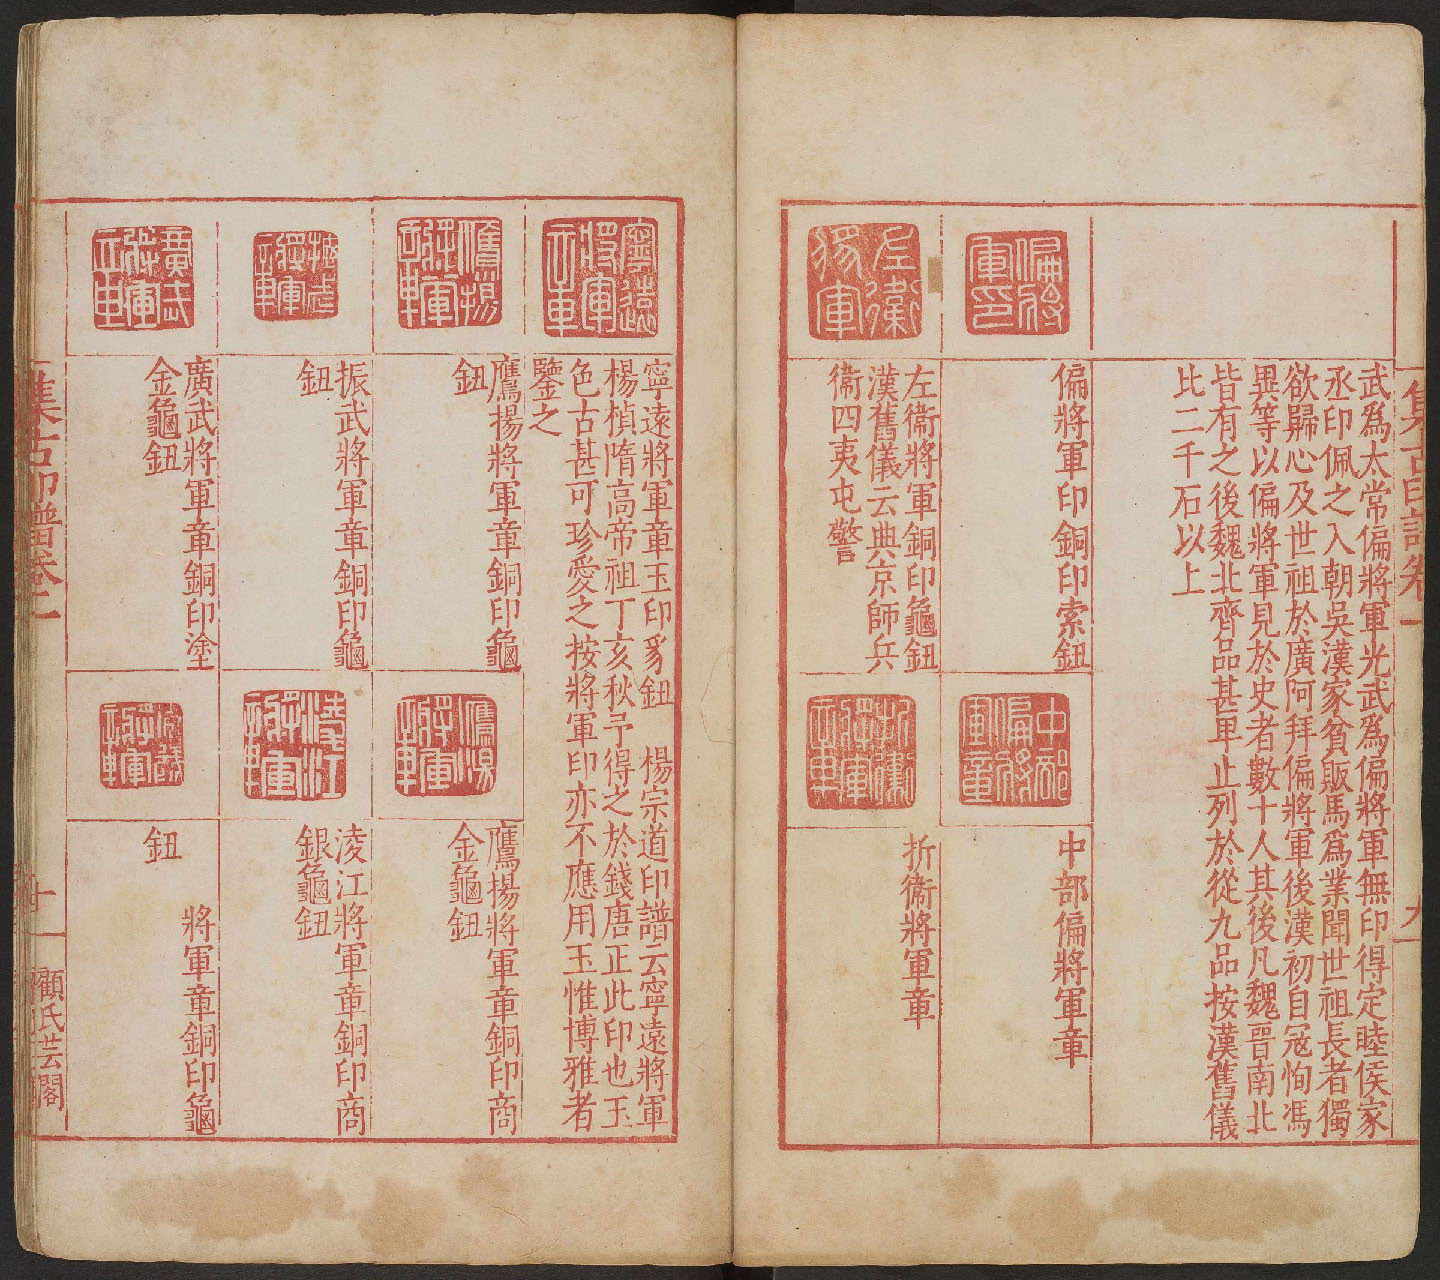 集古印譜卷二
九
武爲太常偏將軍光武爲偏將軍無印得定睦侯家
丞印佩之入朝吳漢家貧販馬爲業聞世祖長者獨
欲歸心及世祖於廣阿拜偏將軍後漢初自寇恂馮
異等以偏將軍見於史者數十人其後凡魏晉南北
皆有之後魏北齊品甚卑止列於從九品按漢舊儀
比二千石以上
偏將軍印
偏將軍印銅印索鈕
中部偏將軍章
中部偏將軍章
左衞將軍
左衞將軍銅印龜鈕
漢舊儀云典京師兵
衞四夷屯警
折衝將軍章
折衝將軍章
寧遠將軍章
寧遠將軍章玉印豸鈕 楊宗道印譜云寧遠將軍
楊楨隋高帝祖丁亥秋予得之於錢唐正此印也玉
色古甚可珍愛之按將軍印亦不應用玉惟博雅者
鑒之
鷹揚將軍章
鷹揚將軍章銅印龜
鈕
鷹揚將軍章
鷹揚將軍章銅印商
金龜鈕
振武將軍章
振武將軍章銅印龜
鈕
淩江將軍章
淩江將軍章銅印商
銀龜鈕
廣武將軍章
廣武將軍章銅印塗
金龜鈕
將軍章
將軍章銅印龜
鈕
集古印譜卷二
十
顧氏芸閣